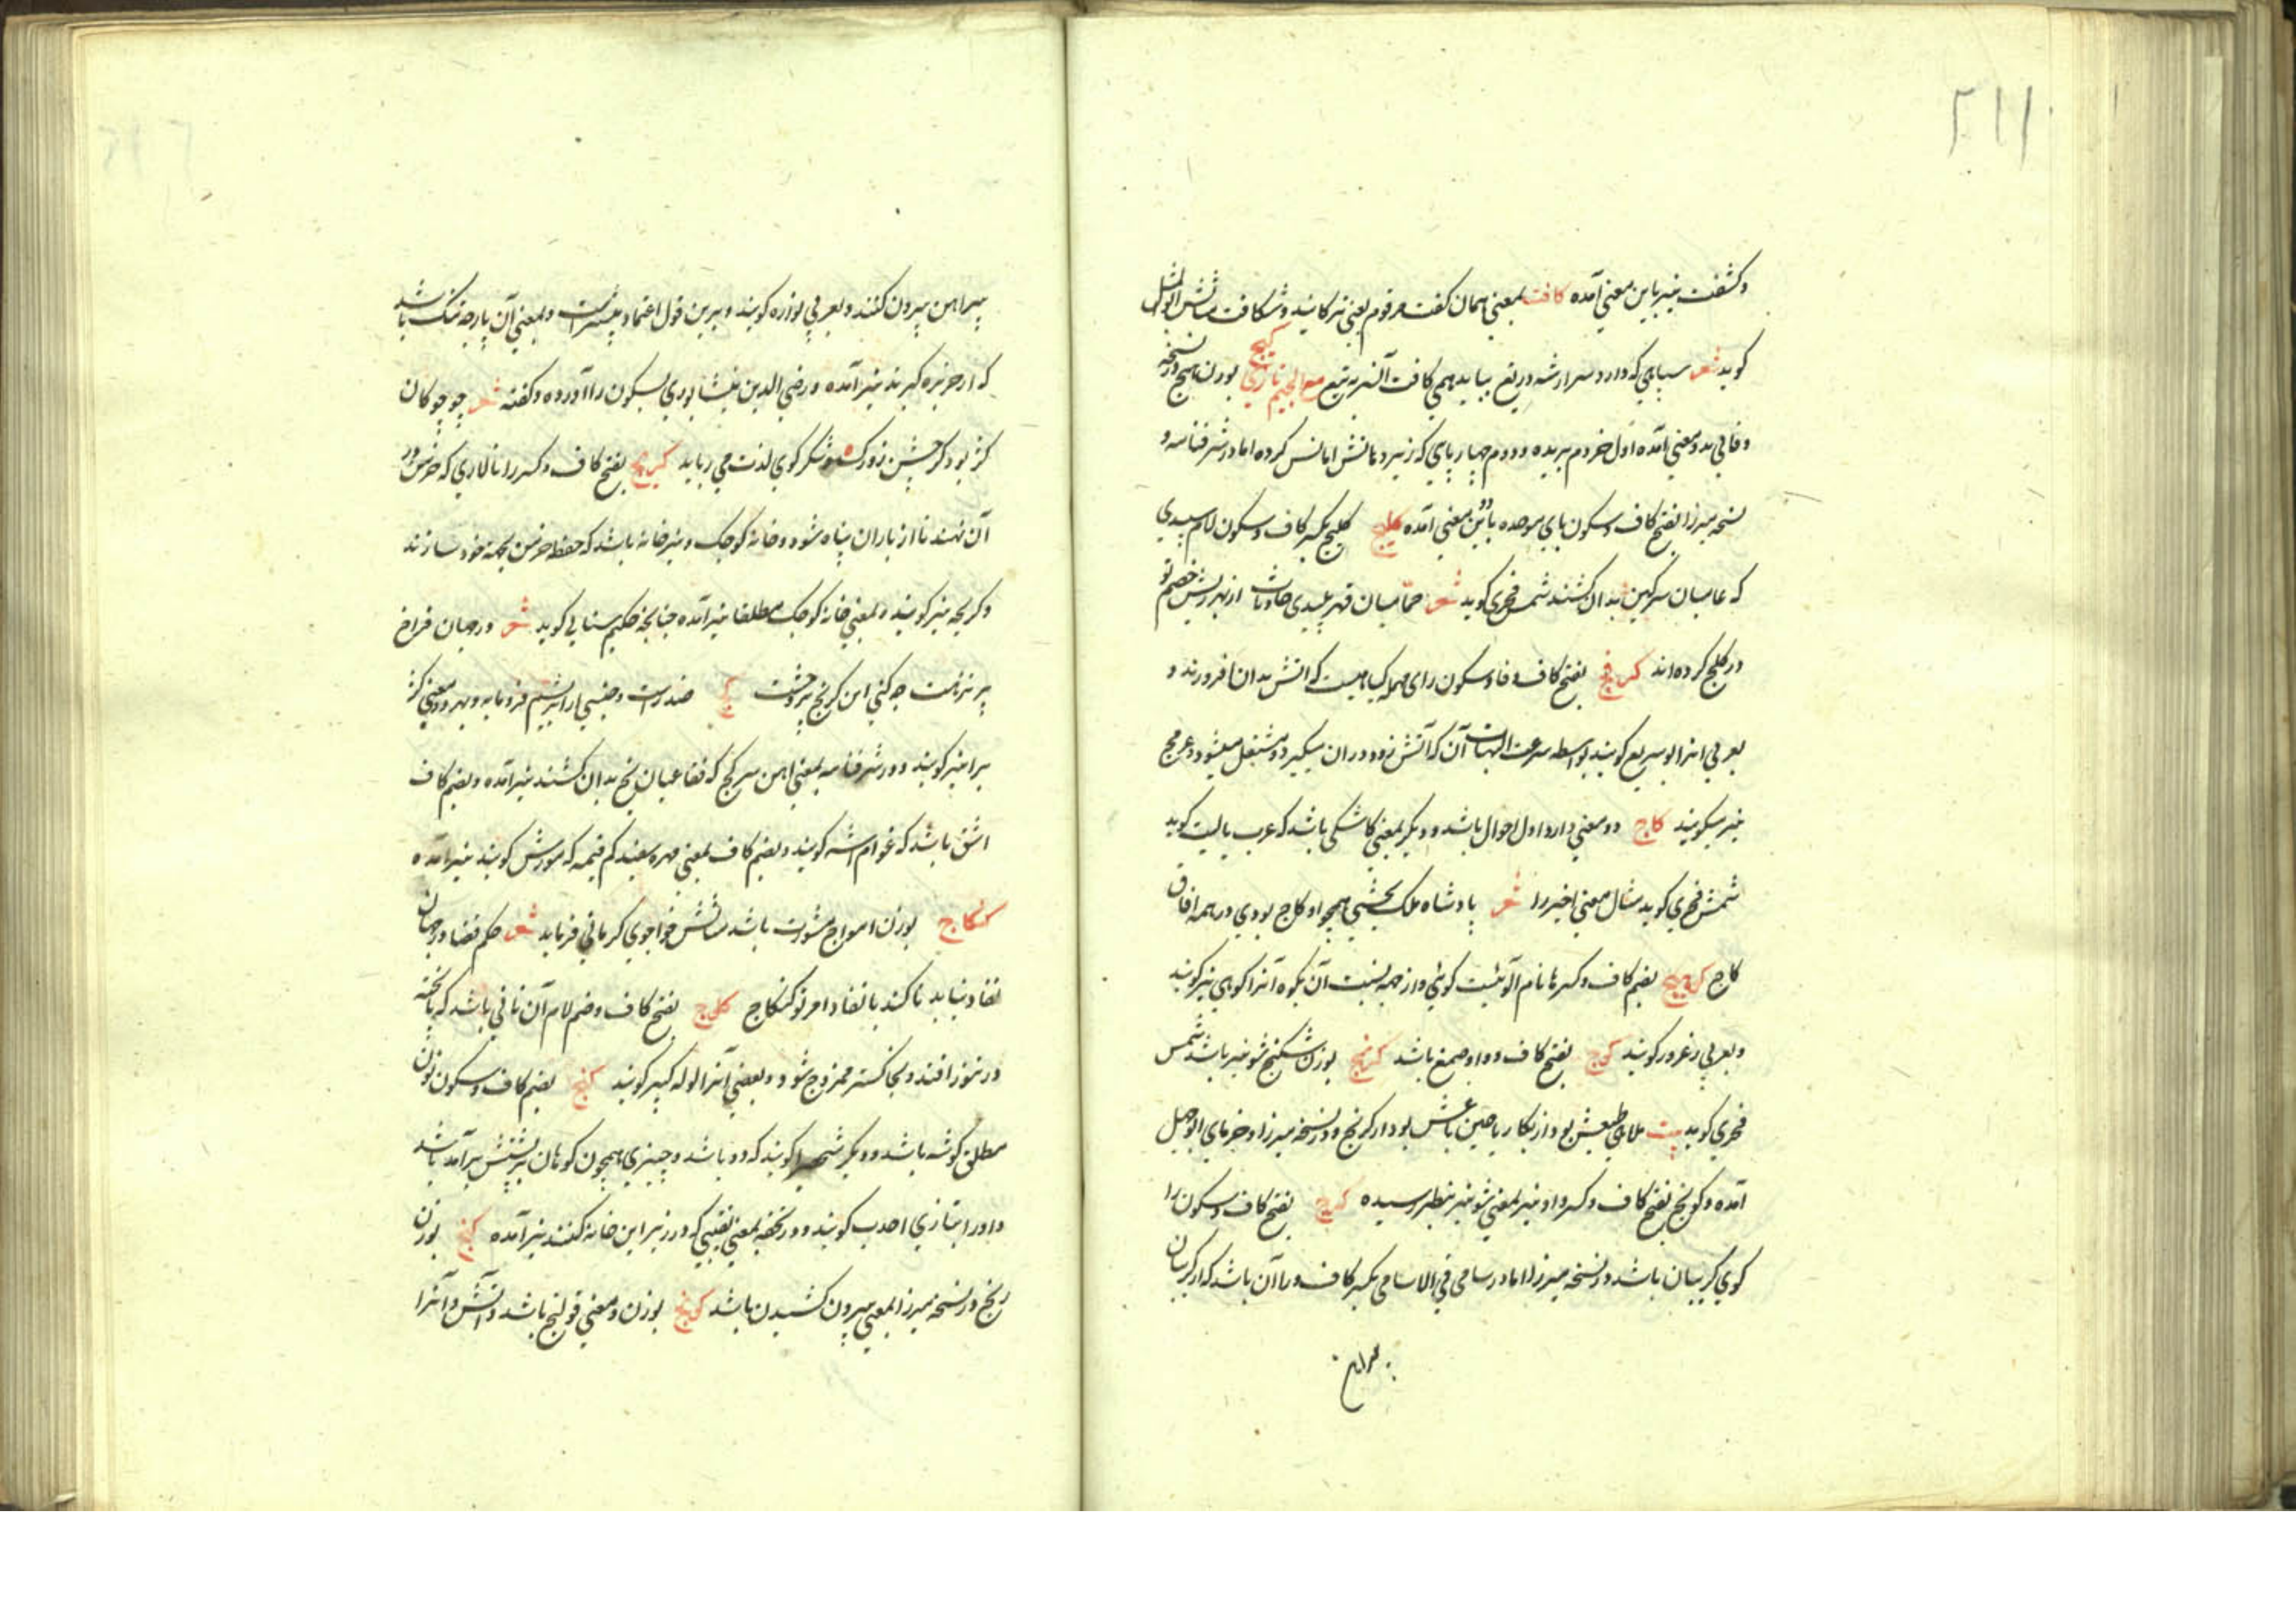 ۲۱۱
وکشفت نیز باین معنی آمده کافت بمعنی همان کفت مرقوم یعنی ترکانید وشکافت مثالش ابوالمثل
کوید شعر سپاهی که دارد سر ار شه دریغ بباید همی کافت آن سر به تیغ مع الجیم تازی کبج بوزن همج در نسخه
وفائی بدو معنی آمده اول خر دم بریده ودوم چهارپای که زیر دهانش اماس کرده اما در شرفنامه و
نسخه میرزا بفتح کاف وسکون بای موحده باین دو معنی آمده کلج کلج بکسر کاف وسکون لام سبدی
که عامیان سرکین بدان کشند شمس فخری کوید شعر حمامیان قهر پلیدی حادثات از بهر ریش خصم تو
در کلج کرده اند کفرج بفتح کاف وفا وسکون رای مهمله کیاهیست که اتش بدان افروزند و
بعربی انرا ابو سریع کویند بواسطه سرعت التهاب آن که آتش زود در ان میگیرد ومشتعل میشود وعرفج
نیز میکویند کاج دو معنی دارد اول احوال باشد ودیگر بمعنی کاشکی باشد که عرب یالیت کوید
شمس فخری کوید مثال معنی اخیر را شعر پادشاه ملک بخشی همچو او کاج بودی در همه افاق
کاج کوهیج بضم کاف وکسر ها نام آلوئیست کوئی واز جهه نسبت آن بکوه آنرا کوهی نیز کویند
وبعربی زعرور کویند کوج بفتح کاف وواو صمغ باشد کرنج بوزن شکنج شونیز باشد شمس
فخری کوید بیت ملایم طبعش بود از بکار ریاحین باغش بود ار کرنج ودر نسخه میرزا وخرمای ابوجهل
آمده وکونج بفتح کاف وکسر واو نیز بمعنی شونیز بنظر رسیده کرج بفتح کاف وسکون را
کوی کریبان باشد در نسخه میرزا اما در سامی فی الاسامی بکسر کاف ورا آن باشد که از کریبان
پیراهن
پیراهن بیرون کنند وبعربی لوزه کویند وبرین قول اعتماد بیشتر است وبمعنی آن پارچه تنک باشد
که از خربزه کیرند نیز آمده ورضی الدین نیشابوری بسکون را آورده وکفته شعر چو چوکان
کژ بود کرجش بزودی شکر کوی لذت می رباید کریج بفتح کاف وکسر را تالاری که خرمن در
آن نهند تا از باران پناه شود وخانه کوچک ونیز خانه باشد که حفظ خرمن بجهه خود سازند
وکریچه نیز کویند وبمعنی خانه کوچک مطلقا نیز آمده چنانچه حکیم سنایی کوید شعر در جهان فراخ
پر نزهت چه کنی این کریج پر وحشت کج ضد راست وجنسی از ابریشم فرومایه وبهر دو معنی کژ
را نیز کویند ودر شرفنامه بمعنی اهن سر کج که فقاعیان یخ بدان کشند نیز آمده وبضم کاف
اشق باشد که عوام اشه کویند وبضم کاف بمعنی مهره سفید کم قیمه که مورش کویند نیز آمده
کنکاج بوزن امواج مشورت باشد مثالش خواجوی کرمانی فرماید شعر حکم قضا در جهان
نفاد نیابد تا نکند با نفاد امر تو کنکاج کلاج بفتح کاف وضم لام آن نانی باشد که ناپخته
در تنور افتد وبخاکستر ممزوج شود وبعضی آنرا لوله کبیر کویند کنج بضم کاف وسکون نون
مطلق کوشه باشد ودیگر شخصی را کویند که دو تا باشد وچیزی همچون کوهان بر پشتش برآمد باشد
واورا بتازی احدب کویند ودر نسخه بمعنی نقبی که در زیر این خانه کنند نیز آمده کنج بوزن
رنج در نسخه میرزا بمعنی بیرون کشیدن باشد کولنج بوزن ومعنی قولنج باشد وآتش دانرا